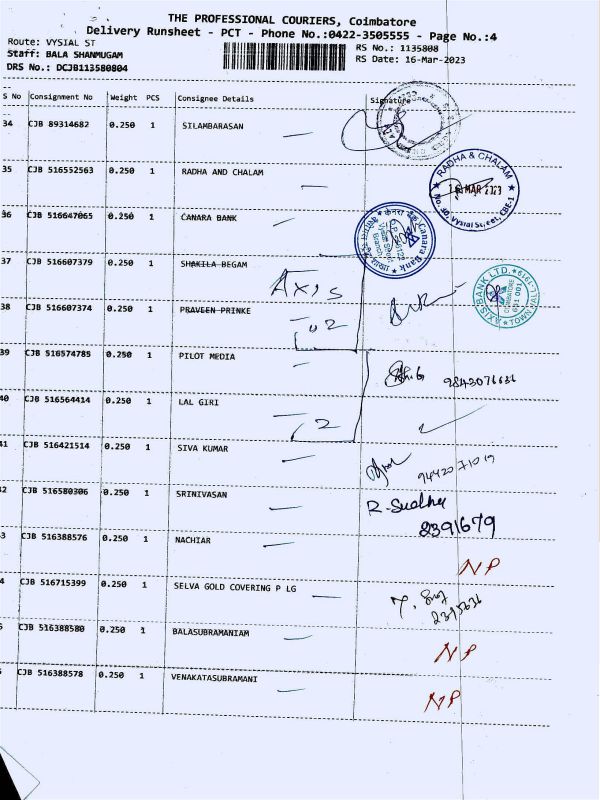 THE PROFESSIONAL COURIERS, Coimbatore
Delivery Runsheet - PCT - Phone No.:0422-3505555 - Page No.:4
Route: VYSIAL ST
RS No.: 1135808
Staff: BALA SHANMUGAM
RS Date: 16-Mar-2023
DRS No.: DCJB113580804
S No Consignment No Weight PCS Consignee Details Signature
34 CJB 89314682 0.250 1 SILAMBARASAN
35 CJB 516552563 0.250 1 RADHA AND CHALAM
RADHA & CHALAM
16 MAR 2023
No. 40, Vysial Street, CBE-1
36 CJB 516647065 0.250 1 CANARA BANK
Canara Bank
37 CJB 516607379 0.250 1 SHAKILA BEGAM
AXIS
AXIS BANK LTD.
COIMBATORE
641 001
TOWN HALL-1919
38 CJB 516607374 0.250 1 PRAVEEN PRINKE
2
39 CJB 516574785 0.250 1 PILOT MEDIA
9843076636
40 CJB 516564414 0.250 1 LAL GIRI
2
41 CJB 516421514 0.250 1 SIVA KUMAR
94420 71019
42 CJB 516580306 0.250 1 SRINIVASAN
R. Sudha
2391679
3 CJB 516388576 0.250 1 NACHIAR
NP
4 CJB 516715399 0.250 1 SELVA GOLD COVERING P LG
2395636
5 CJB 516388580 0.250 1 BALASUBRAMANIAM
NP
CJB 516388578 0.250 1 VENAKATASUBRAMANI
NP